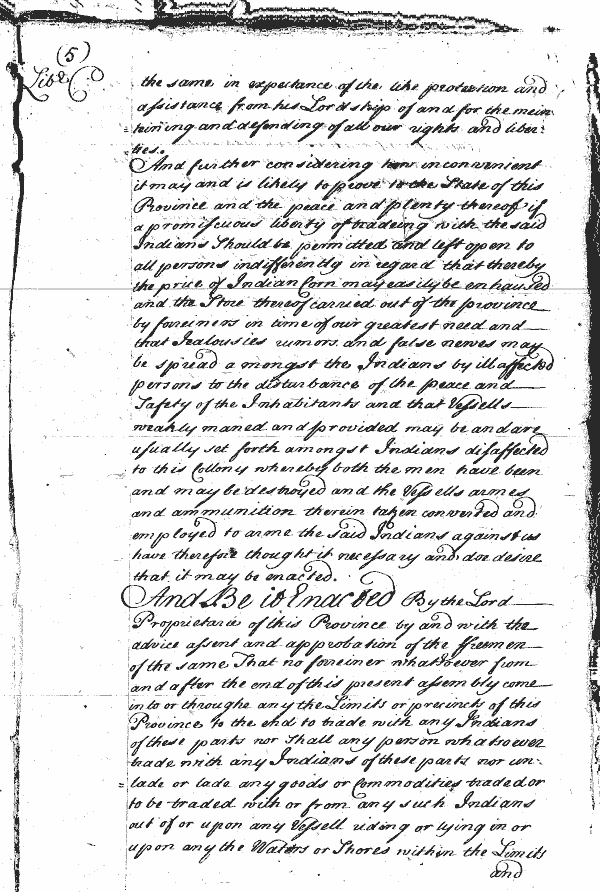 (5)
Libr C.
the same in expectance of the like protection and
assistance from his Lordship of and for the mein
teining and defending of all our rights and liber=
ties.
And further considering how inconvenient
it may and is likely to prove to the State of this
Province and the peace and plenty thereof if
a promiscuous liberty of tradeing with the said
Indians Should be permitted and left open to
all persons indifferently in regard that thereby
the price of Indian Corn may easily be enhaused
and the Store thereof carried out of the province
by foreiners in time of our greatest need and
that Jealousies rumors and false newes may
be spread amongst the Indians by ill affected
persons to the disturbance of the peace and
Safety of the Inhabitants and that Vessells
weakly maned and provided may be and are
usually set forth amongst Indians disaffected
to this Collony whereby both the men have been
and may be destroyed and the Vessells armes
and ammunition therein taken converted and
employed to arme the said Indians against us
have therefore thought it necessary and doe desire
that it may be enacted.
And Be it Enacted By the Lord
Proprietarie of this Province by and with the
advice assent and approbation of the ffreemen
of the same That no foreiner whatsoever from
and after the end of this present assembly come
into or throughe any the Limits or precincts of this
Province to the end to trade with any Indians
of these parts nor Shall any person whatsoever
trade with any Indians of these parts nor un=
lade or lade any goods or Commodities traded or
to be traded with or from any such Indians
out of or upon any Vessell riding or lying in or
upon any the Waters or Shores within the Limits
and